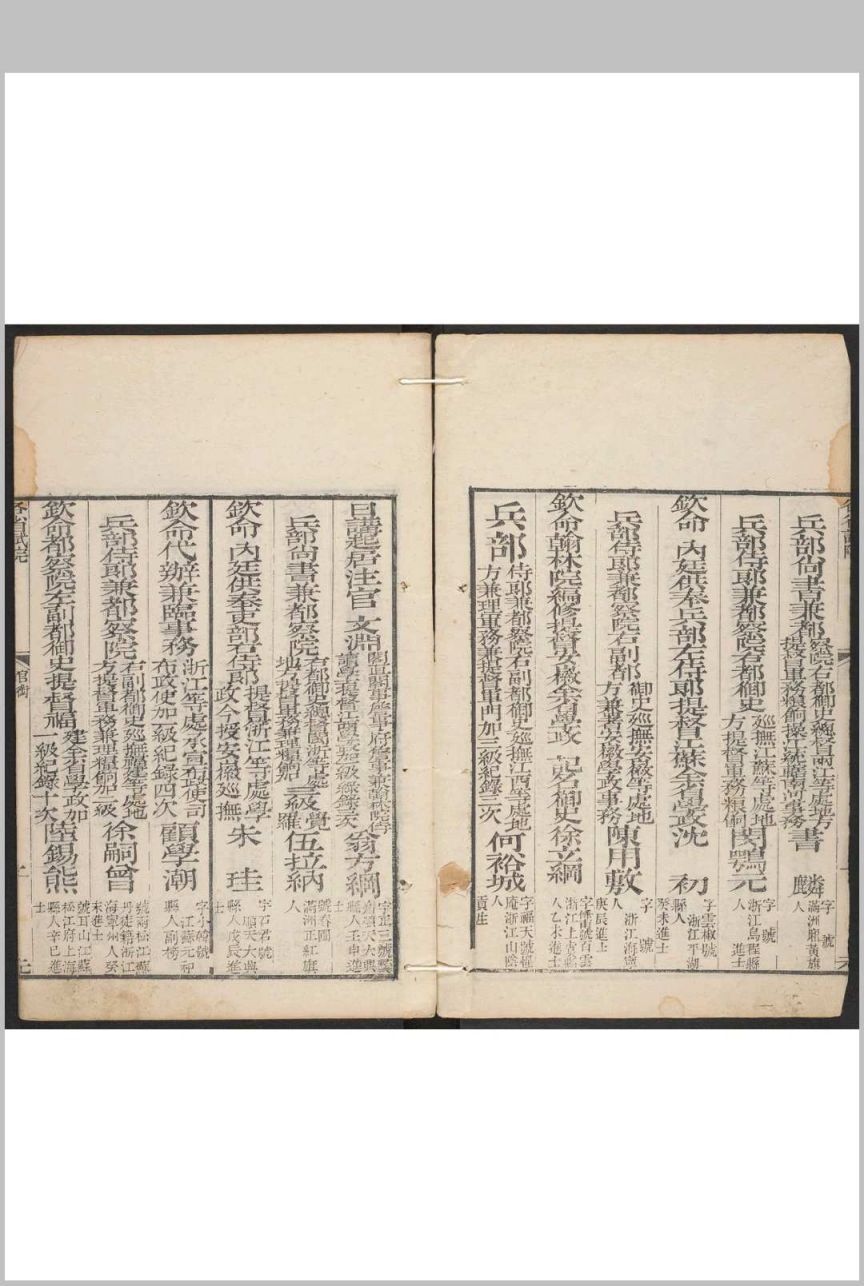 兵部尚書兼都察院右都御史總督兩江等處地方提督軍務糧餉操江統轄南河事務書　麟字　號　滿洲鑲黃旗人
兵部侍郎兼都察院右副都御史巡撫江蘇等處地方提督軍務糧餉閔鶚元字　號　浙江烏程縣人　進士
欽命　內廷供奉兵部左侍郎提督江蘇全省學政沈　初字雲椒號　浙江平湖縣人癸未進士
兵部侍郎兼都察院右副都御史巡撫安徽等處地方兼署安徽學政事務陳用敷字　號　浙江海寧人庚辰進士
欽命翰林院編修提督安徽全省學政　記名御史徐立綱字條甫號百雲浙江上虞縣人乙未進士
兵部侍郎兼都察院右副都御史巡撫江西等處地方兼理軍務兼提督軍門加三級紀錄三次何裕城字福天號樨庵浙江山陰人貢生
日講起居注官　文淵閣直閣事詹事府詹事兼翰林院侍讀學士提督江西學政加級紀錄三次翁方綱字正三號覃谿順天大興縣人壬申進士
兵部尚書兼都察院右都御史總督閩浙等處地方提督軍務兼理糧餉三級覺羅伍拉納號春圃滿洲正紅旗人
欽命　內廷供奉吏部右侍郎提督浙江等處學政今授安徽巡撫朱　珪字石君號　順天大興縣人戊辰進士
欽命代辦兼臨事務浙江等處承宣布政使司布政使加一級紀錄四次顧學潮字小韓號　江蘇元和縣人副榜
兵部侍郎兼都察院右副都御史巡撫福建等處地方提督軍務兼理糧餉加二級徐嗣曾號兩松江蘇丹徒籍浙江海寧州人癸未進士
欽命都察院左副都御史提督福建全省學政加一級紀錄十次陸錫熊號耳山江蘇松江府上海縣人辛巳進士
各省試院
官銜